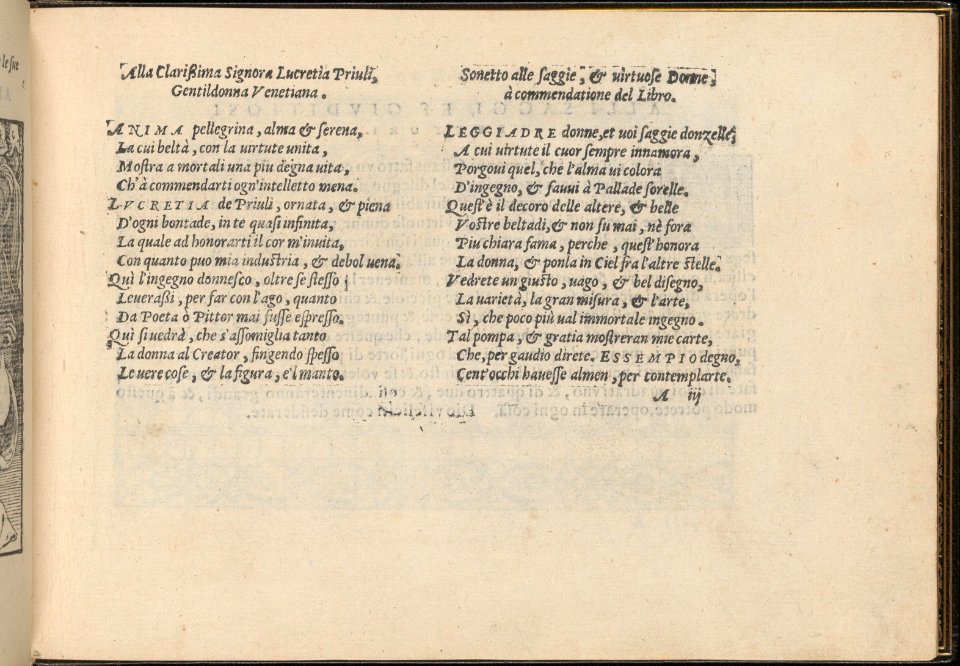 Alla Clarißima Signora Lucretia Priuli,
Gentildonna Venetiana.
ANIMA pellegrina, alma & serena,
La cui beltà, con la virtute unita,
Mostra a mortali una piu degna vita,
Ch'à commendarti ogn'intelletto mena.
LVCRETIA de Priuli, ornata, & piena
D'ogni bontade, in te quasi infinita,
La quale ad honorarti il cor m'inuita,
Con quanto puo mia industria, & debol uena.
Quì l'ingegno donnesco, oltre se stesso
Leueraßi, per far con l'ago, quanto
Da Poeta ò Pittor mai fusse espresso.
Quì si uedrà, che s'assomiglia tanto
La donna al Creator, fingendo spesso
Le uere cose, & la figura, e'l manto.
Sonetto alle saggie, & virtuose Donne,
à commendatione del Libro.
LEGGIADRE donne, et uoi saggie donzelle,
A cui virtute il cuor sempre innamora,
Porgoui quel, che l'alma ui colora
D'ingegno, & fauui à Pallade sorelle.
Quest'è il decoro delle altere, & belle
Vostre beltadi, & non fu mai, nè fora
Piu chiara fama, perche, quest'honora
La donna, & ponla in Ciel fra l'altre stelle.
Vedrete un giusto, uago, & bel disegno,
La varietà, la gran misura, & l'arte,
Sì, che poco più ual immortale ingegno.
Tal pompa, & gratia mostreran mie carte,
Che, per gaudio direte. ESSEMPIO degno,
Cent'occhi hauesse almen, per contemplarte.
A iij